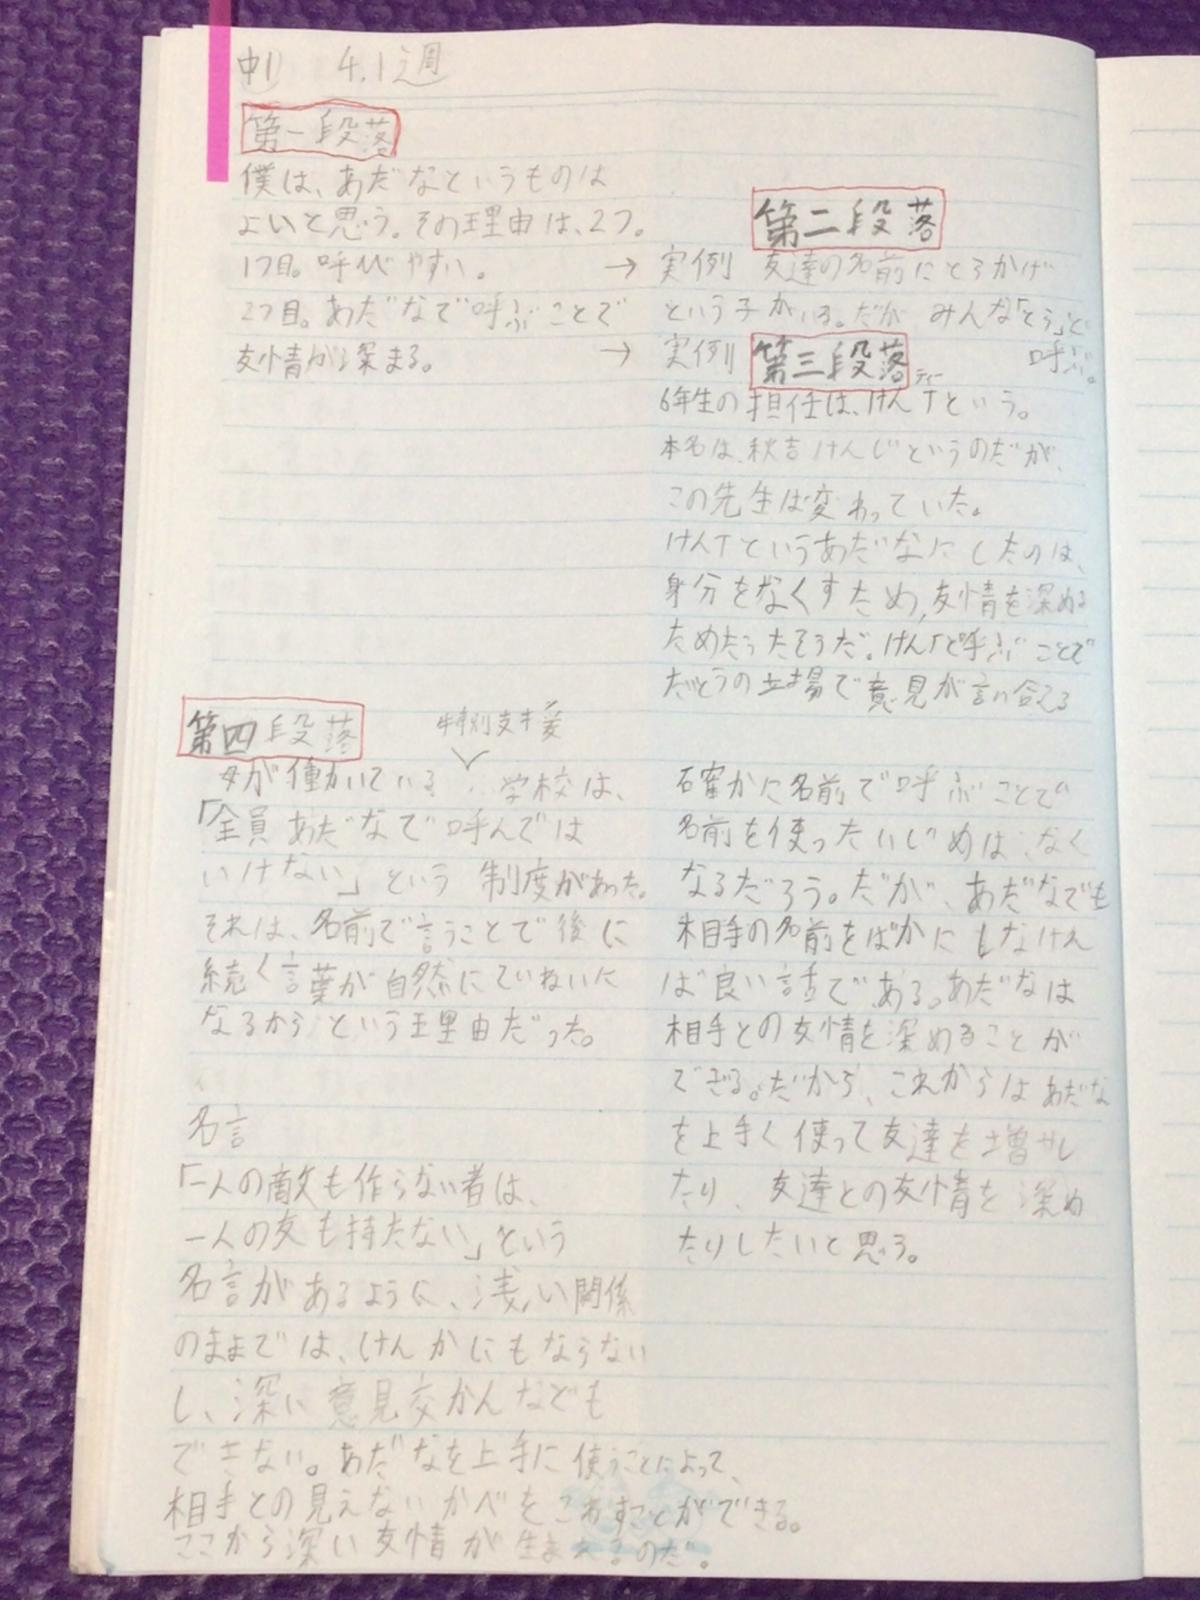 中1 4.1週
第一段落
僕は、あだなというものは
よいと思う。その理由は、2つ。
1つ目。呼びやすい。
2つ目。あだなで呼ぶことで
友情が深まる。
第二段落
→ 実例 友達の名前にとろかげ
という子がいる。だが みんな「とう」と
呼ぶ。
→ 実例 第三段落
ティー
6年生の担任は、けんTという。
本名は、秋吉けんじというのだが、
この先生は変わっていた。
けんTというあだなにしたのは、
身分をなくすため、友情を深める
ためだったそうだ。けんTと呼ぶことで
たいとうの立場で意見が言い合える
第四段落
特別支援
母が働いている 学校は、
「全員あだなで呼んでは
いけない」という 制度があった。
それは、名前で言うことで後に
続く言葉が自然にていねいに
なるからという理由だった。
名言
「一人の敵も作らない者は、
一人の友も持たない」という
名言があるように、浅い関係
のままでは、けんかにもならない
し、深い意見交かんなども
できない。あだなを上手に使うことによって、
相手との見えないかべをこわすことができる。
ここから深い友情が生まれるのだ。
確かに名前で呼ぶことで
名前を使ったいじめは、なく
なるだろう。だが、あだなでも
相手の名前をばかにしなけれ
ば良い話である。あだなは
相手との友情を深めることが
できる。だから、これからはあだな
を上手く使って友達を増やし
たり、友達との友情を深め
たりしたいと思う。